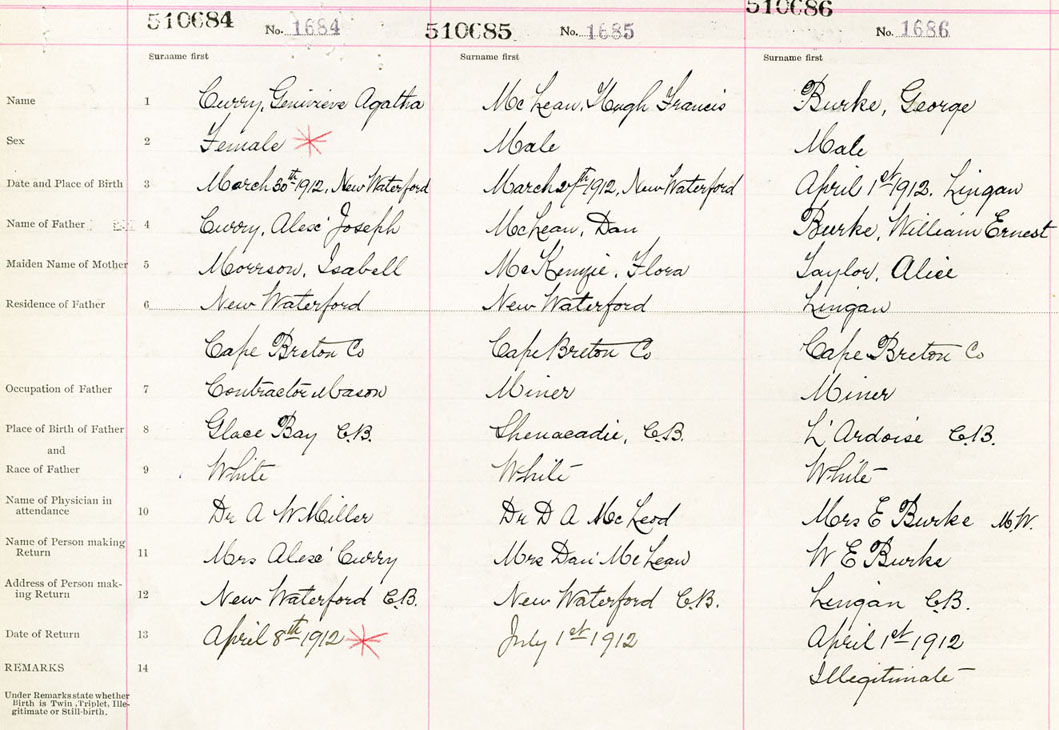 510684 No. 1684 510685 No. 1685 510686 No. 1686
Surname first Surname first Surname first
Name 1 Curry, Genivieve Agatha McLean, Hugh Francis Burke, George
Sex 2 Female Male Male
Date and Place of Birth 3 March 30th 1912, New Waterford March 27th 1912, New Waterford April 1st 1912. Lingan
Name of Father 4 Curry, Alex' Joseph McLean, Dan Burke, William Ernest
Maiden Name of Mother 5 Morrson, Isabell McKenzie, Flora Taylor, Alice
Residence of Father 6 New Waterford New Waterford Lingan
Cape Breton Co Cape Breton Co Cape Breton Co
Occupation of Father 7 Contractor Mason Miner Miner
Place of Birth of Father 8 Glace Bay C.B. Shenacadie, C.B. L'Ardoise C.B.
and
Race of Father 9 White White White
Name of Physician in
attendance 10 Dr A W Miller Dr D A McLeod Mrs E Burke M.W.
Name of Person making
Return 11 Mrs Alex' Curry Mrs Dan' McLean W E Burke
Address of Person mak-
ing Return 12 New Waterford C.B. New Waterford C.B. Lingan C.B.
Date of Return 13 April 8th 1912 July 1st 1912 April 1st 1912
REMARKS 14 Illegitimate
Under Remarks state whether
Birth is Twin, Triplet, Ille-
gitimate or Still-birth.